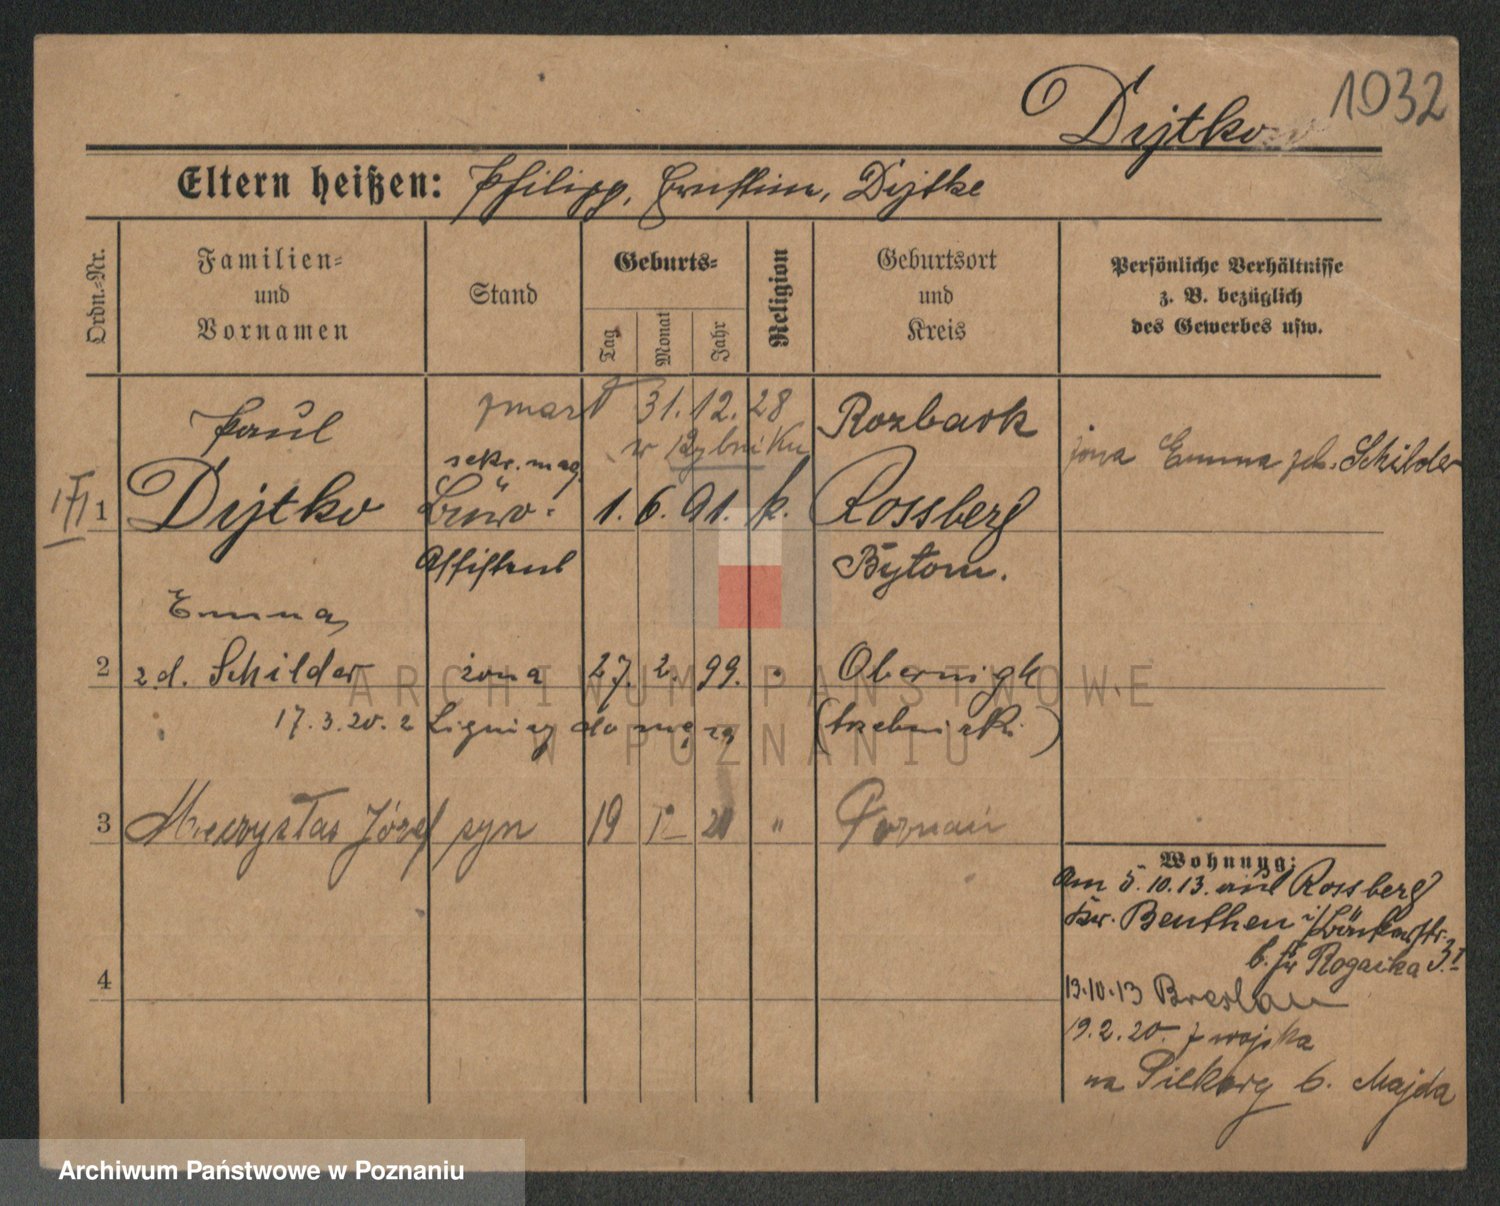 1032
Dijtko
Eltern heißen: Philipp, Ernstine, Dijtke
Ordn.-Nr.
Familien-
und
Vornamen
Stand
Geburts-
Tag
Monat
Jahr
Religion
Geburtsort
und
Kreis
Persönliche Verhältnisse
z. B. bezüglich
des Gewerbes usw.
zmarł 31.12.28
w Rybniku
Paul
Rozbark
żona Emma geb. Schilder
sekr. mag.
1 Dijtko Büro- 1. 6. 91. k. Rossberg
Assistent
Bytom.
Emma
2 z d. Schilder żona 27. 2. 99. " Obernigk
17.3.20. z Lignicy do męża
3 Mieczysław Józef syn 19 I 21 " Poznań
Wohnung:
Am 5.10.13. aus Rossberg
Kr. Beuthen
b. Rogacka 3 I
13.10.13 Breslau
19.2.20. z wojska
na 6. Majda
4
ARCHIWUM PAŃSTWOWE
W POZNANIU
Archiwum Państwowe w Poznaniu